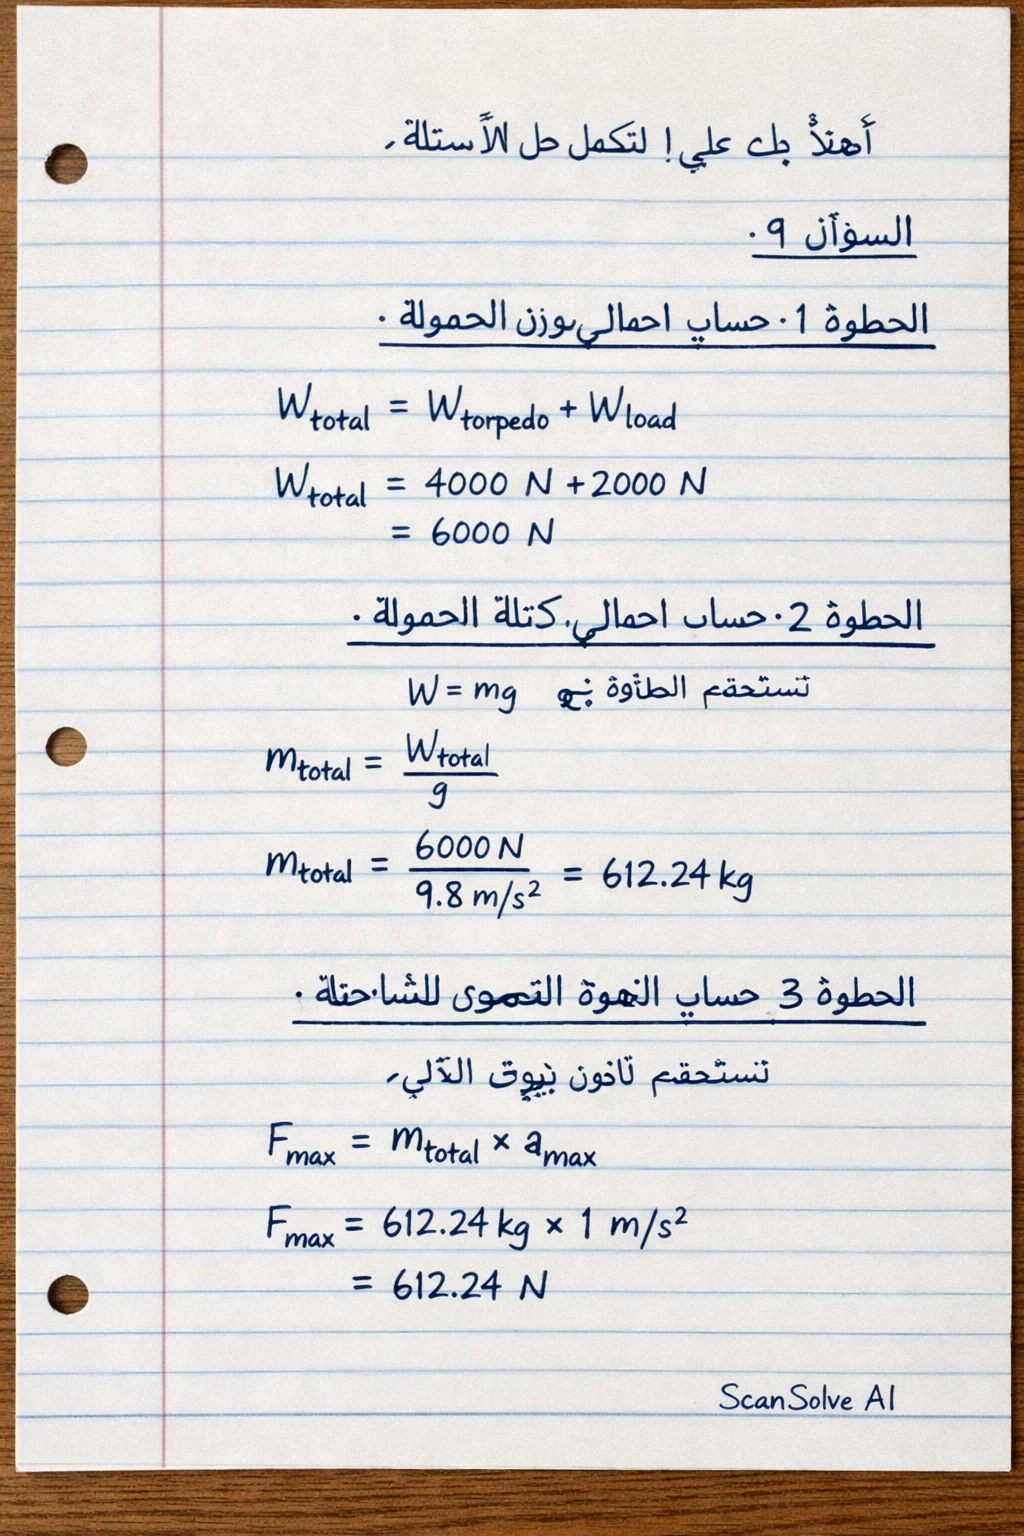 أهتلاً بك علي! لتكمل حل الأستلة،
السؤان 9.
الحطوة 1. حساب احمالي بوزن الحمولة.
W_total = W_torpedo + W_load
W_total = 4000 N + 2000 N
= 6000 N
الحطوة 2. حساب احمالي. كتلة الحمولة.
تستحقم W = mg
m_total = W_total / g
m_total = 6000 N / 9.8 m/s² = 612.24 kg
الحطوة 3 حساب التصوى للشاحتلة.
تستحقم تانون
F_max = m_total × a_max
F_max = 612.24 kg × 1 m/s²
= 612.24 N
ScanSolve AI